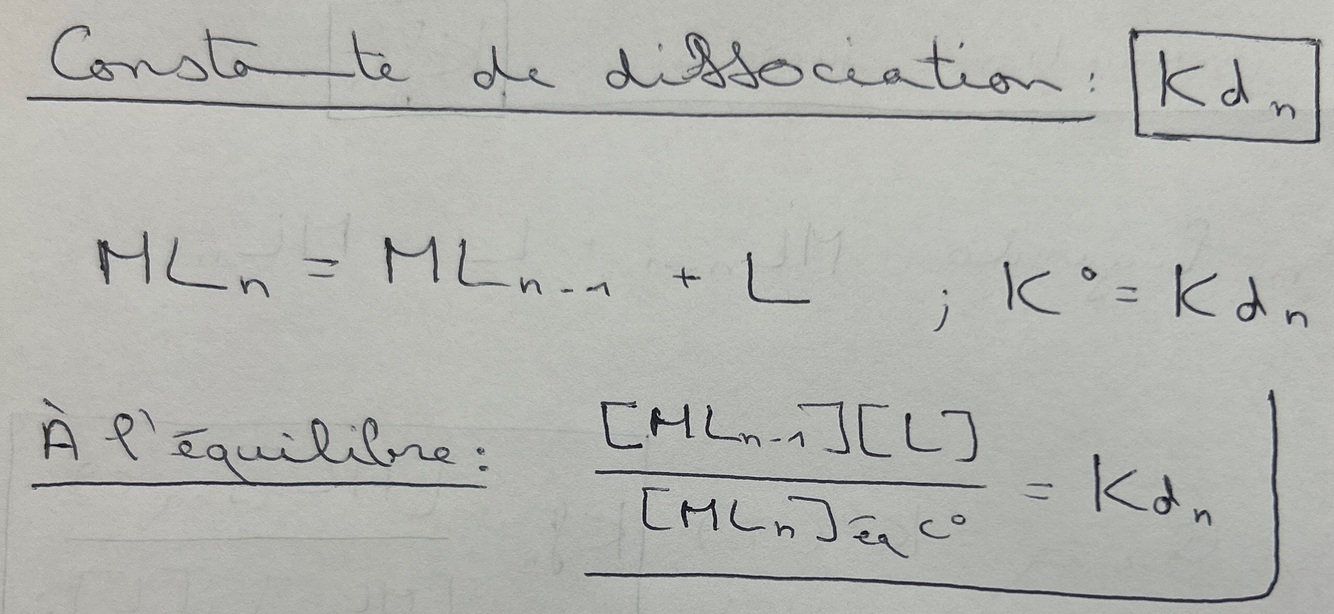 Constante de dissociation : Kd_n
ML_n = ML_{n-1} + L ; K° = Kd_n
À l'équilibre : \frac{[ML_{n-1}][L]}{[ML_n]_{éq} C°} = Kd_n